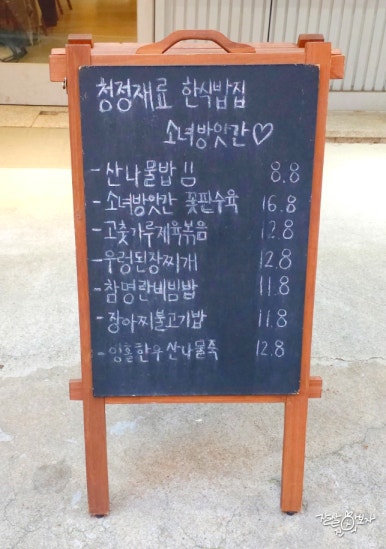 청정재료 한식밥집
소녀방앗간♡
- 산나물밥 !! 8.8
- 소녀방앗간 꽃판수육 16.8
- 고춧가루제육볶음 12.8
- 우렁된장찌개 12.8
- 참명란비빔밥 11.8
- 장아찌불고기밥 11.8
- 임홀한우 산나물죽 12.8